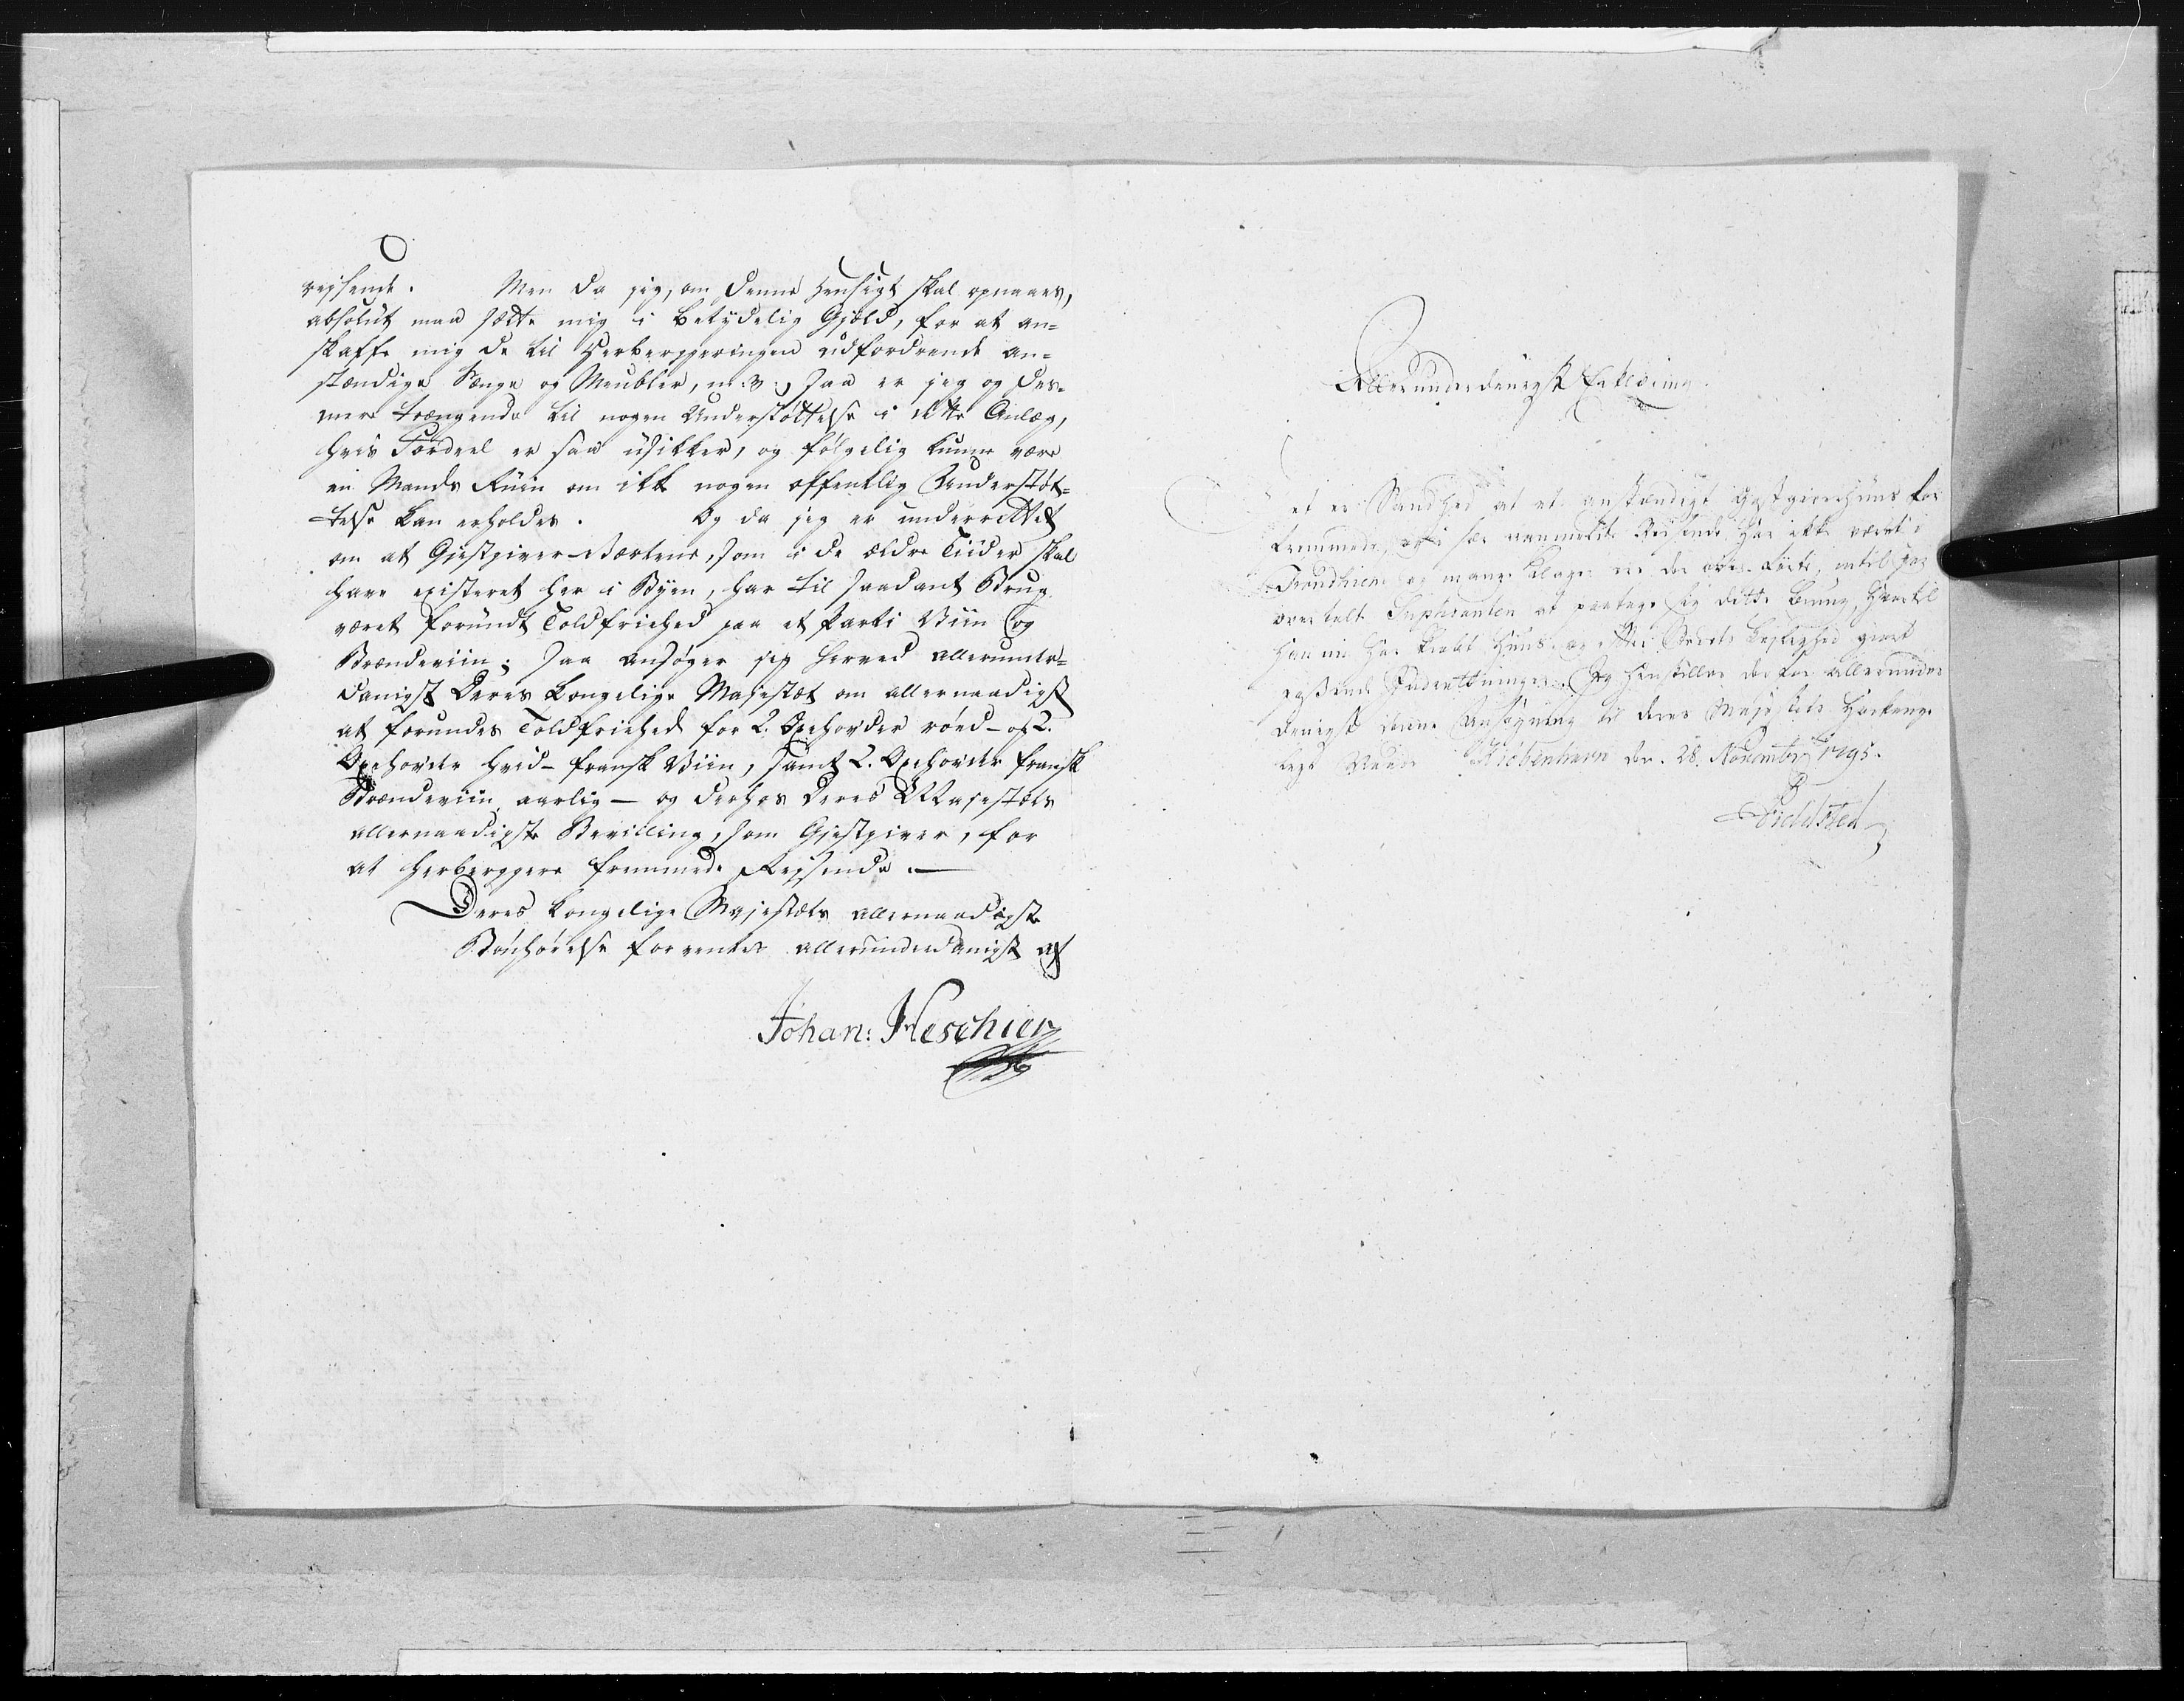 rejsende. Men da jeg, om denne Hensigt skal opnaaes,
absolut maa sætte mig i betydelig Gjæld, for at an=
skaffe mig de til Herbergeringen udfordrende an=
stændige Senge og Meubler, m: v:, saa er jeg og des=
mere trængende til nogen Understøttelse i dette Anlæg,
hvis Fordeel er saa usikker, og følgelig kunne være
en Mands Ruin om ikke nogen offentlig Understøt=
telse kan erholdes. Og da jeg er underrettet
om at Gjestgiver-Værterne, som i de ældre Tiider skal
have existeret her i Byen, har til saadant Brug
været forundt Toldfriehed paa et Parti Viin og
Brændeviin; saa ansøger jeg herved allerunder=
danigst Deres Kongelige Majestæt om allernaadigst
at forundes Toldfriehed for 2. Oxehoveder röed - og 2.
Oxehoveder hvid - fransk Viin, samt 2. Oxehoveder fransk
Brændeviin aarlig - og derhos Deres Majestæts
allernaadigste Bevilling, som Gjestgiver, for
at herbergere fremmede Rejsende. -
Deres Kongelige Majestæts allernaadigste
Bönhörelse forventer allerunderdanigst af
Johan: Heschier
Allerunderdanigst Erklæring.
et er Sandhed at et anstændigt Giestgiverhuus for
Fremmede, og i sær Reisende har ikke været i
Trondhiem og mange Klager ere der over førte, indtil jeg
overtalte Suplicanten at paatage sig dette Brug, hvortil
han nu har kiøbt Huus og efter Stedets Leylighed giort
Indretninger. Jeg henstiller derfor allerunder
danigst denne Ansøgning til Deres Majestæts
Naade Kiöbenhavn den 28. November 1795.